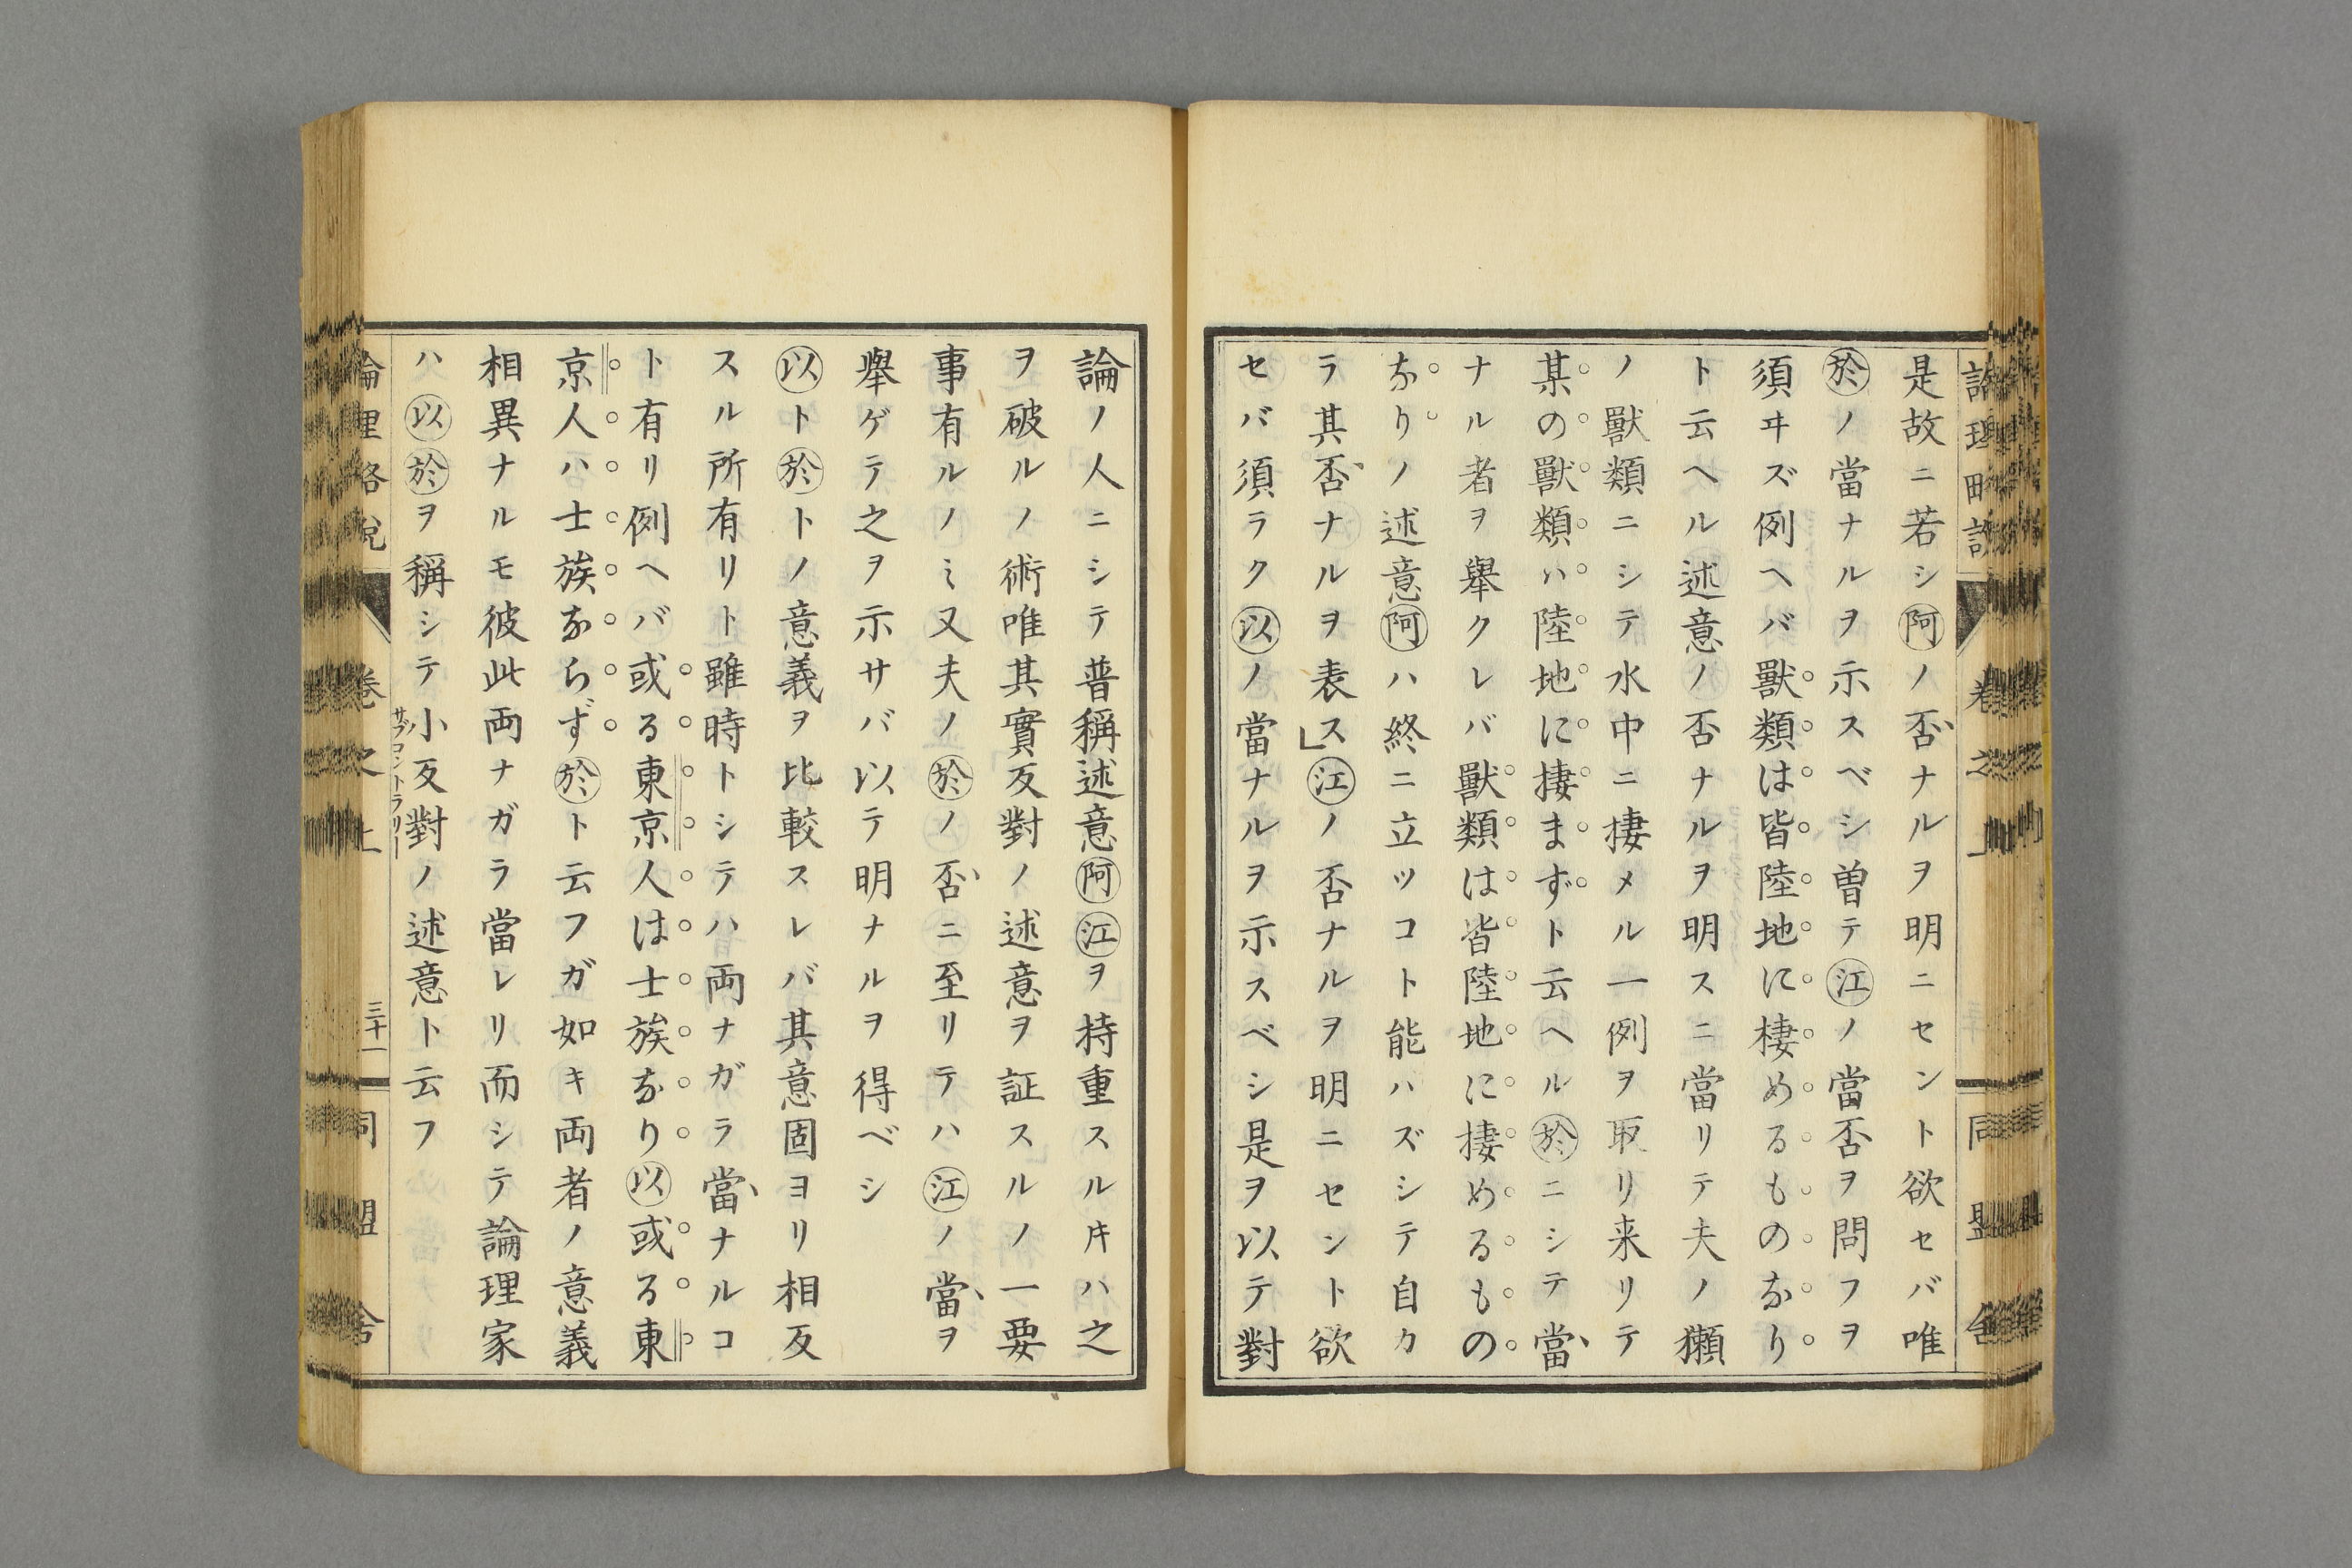 是故ニ若シ阿ノ否ナルヲ明ニセント欲セバ唯
於ノ當ナルヲ示スベシ曽テ江ノ當否ヲ問フヲ
須ヰズ例ヘバ獸類は皆陸地に棲めるものなり
ト云ヘル述意ノ否ナルヲ明スニ當リテ夫ノ獺
ノ獸類ニシテ水中ニ棲メル一例ヲ取リ来リテ
某の獸類ハ陸地に棲まずト云ヘル於ニシテ當
ナル者ヲ舉クレバ獸類は皆陸地に棲めるもの
なりノ述意阿ハ終ニ立ツコト能ハズシテ自カ
ラ其否ナルヲ表ス」江ノ否ナルヲ明ニセント欲
セバ須ラク以ノ當ナルヲ示スベシ是ヲ以テ對
論ノ人ニシテ普稱述意阿江ヲ持重スルヰハ之
ヲ破ルノ術唯其實反對ノ述意ヲ証スルノ一要
事有ルノミ又夫ノ於ノ否ニ至リテハ江ノ當ヲ
舉ゲテ之ヲ示サバ以テ明ナルヲ得ベシ
以ト於トノ意義ヲ比較スレバ其意固ヨリ相反
スル所有リト雖時トシテハ両ナガラ當ナルコ
ト有リ例ヘバ或る東京人は士族なり以或る東
京人ハ士族ならず於ト云フガ如キ両者ノ意義
相異ナルモ彼此両ナガラ當レリ而シテ論理家
ハ以於ヲ稱シテ小反對ノ述意ト云フ
サブコントラリー
論理略說
卷之上
三十一
同盟舍